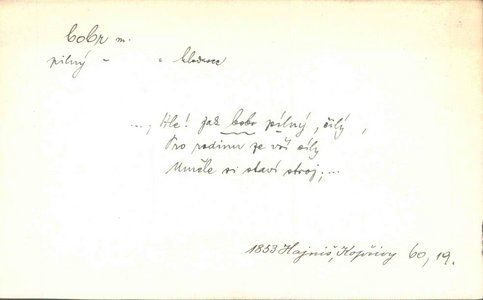 bobr m.
pilný - " hlodavec
...; Hle! jak bobr pilný, čilý,
Pro rodinu ze vší síly
Uměle si staví stroj;...
1853 Hajniš, Kopřivy 60, 19.